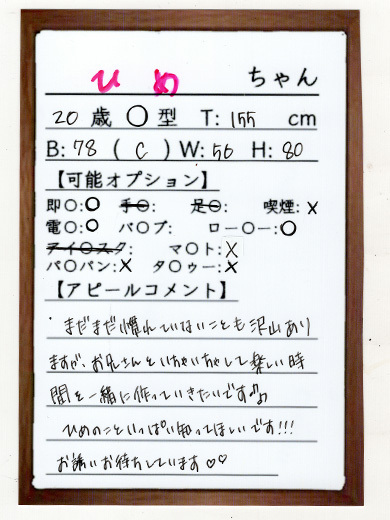 ひめ ちゃん
20 歳 〇 型 T: 155 cm
B: 78 ( C ) W: 56 H: 80
【可能オプション】
即〇:〇 手〇: 足〇: 喫煙: x
電〇:〇 バ〇ブ: ロー〇ー:〇
アイ〇スク: マ〇ト: x
パ〇パン: x タ〇ゥー: x
【アピールコメント】
まだまだ慣れていないことも沢山あり
ますが、お兄さんといちゃいちゃして楽しい時
間を一緒に作っていきたいです♪♪
ひめのこといっぱい知ってほしいです!!!
お誘いお待ちしています♡♡